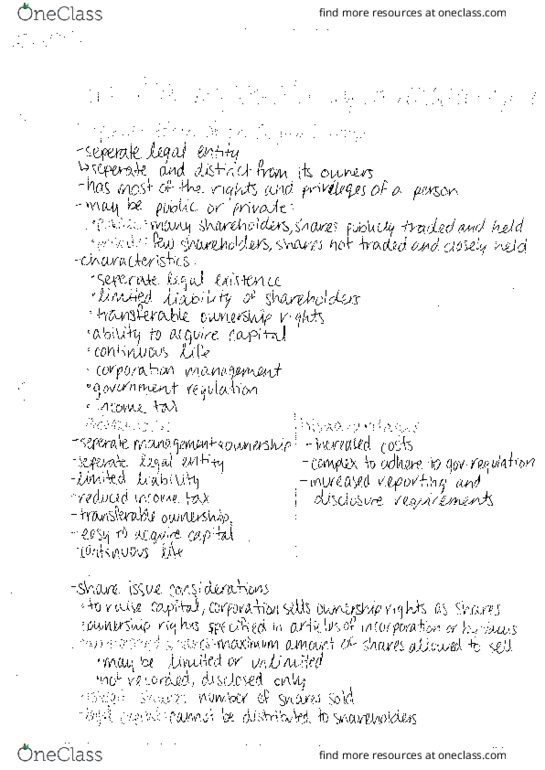 OneClass
find more resources at oneclass.com
-seperate legal entity
↳seperate and district from its owners
-has most of the rights and privileges of a person
-may be public or private:
•public: many shareholders, shares publicly traded and held
•private: few shareholders, shares not traded and closely held
-characteristics:
•seperate legal existence
•limited liability of shareholders
•transferable ownership rights
•ability to acquire capital
•continuous life
•corporation management
•government regulation
•income tax
Advantages Disadvantages
-seperate management+ownership -increased costs
-seperate legal entity -complex to adhere to gov. regulation
-limited liability -increased reporting and
-reduced income tax disclosure requirements
-transferable ownership
-easy to acquire capital
-continuous life
-share issue considerations
•to raise capital, corporation sells ownership rights as shares
•ownership rights specified in articles of incorporation or by-laws
shares: maximum amount of shares allowed to sell
•may be limited or unlimited
•not recorded, disclosed only
shares: number of shares sold
-legal capital: cannot be distributed to shareholders
OneClass
find more resources at oneclass.com